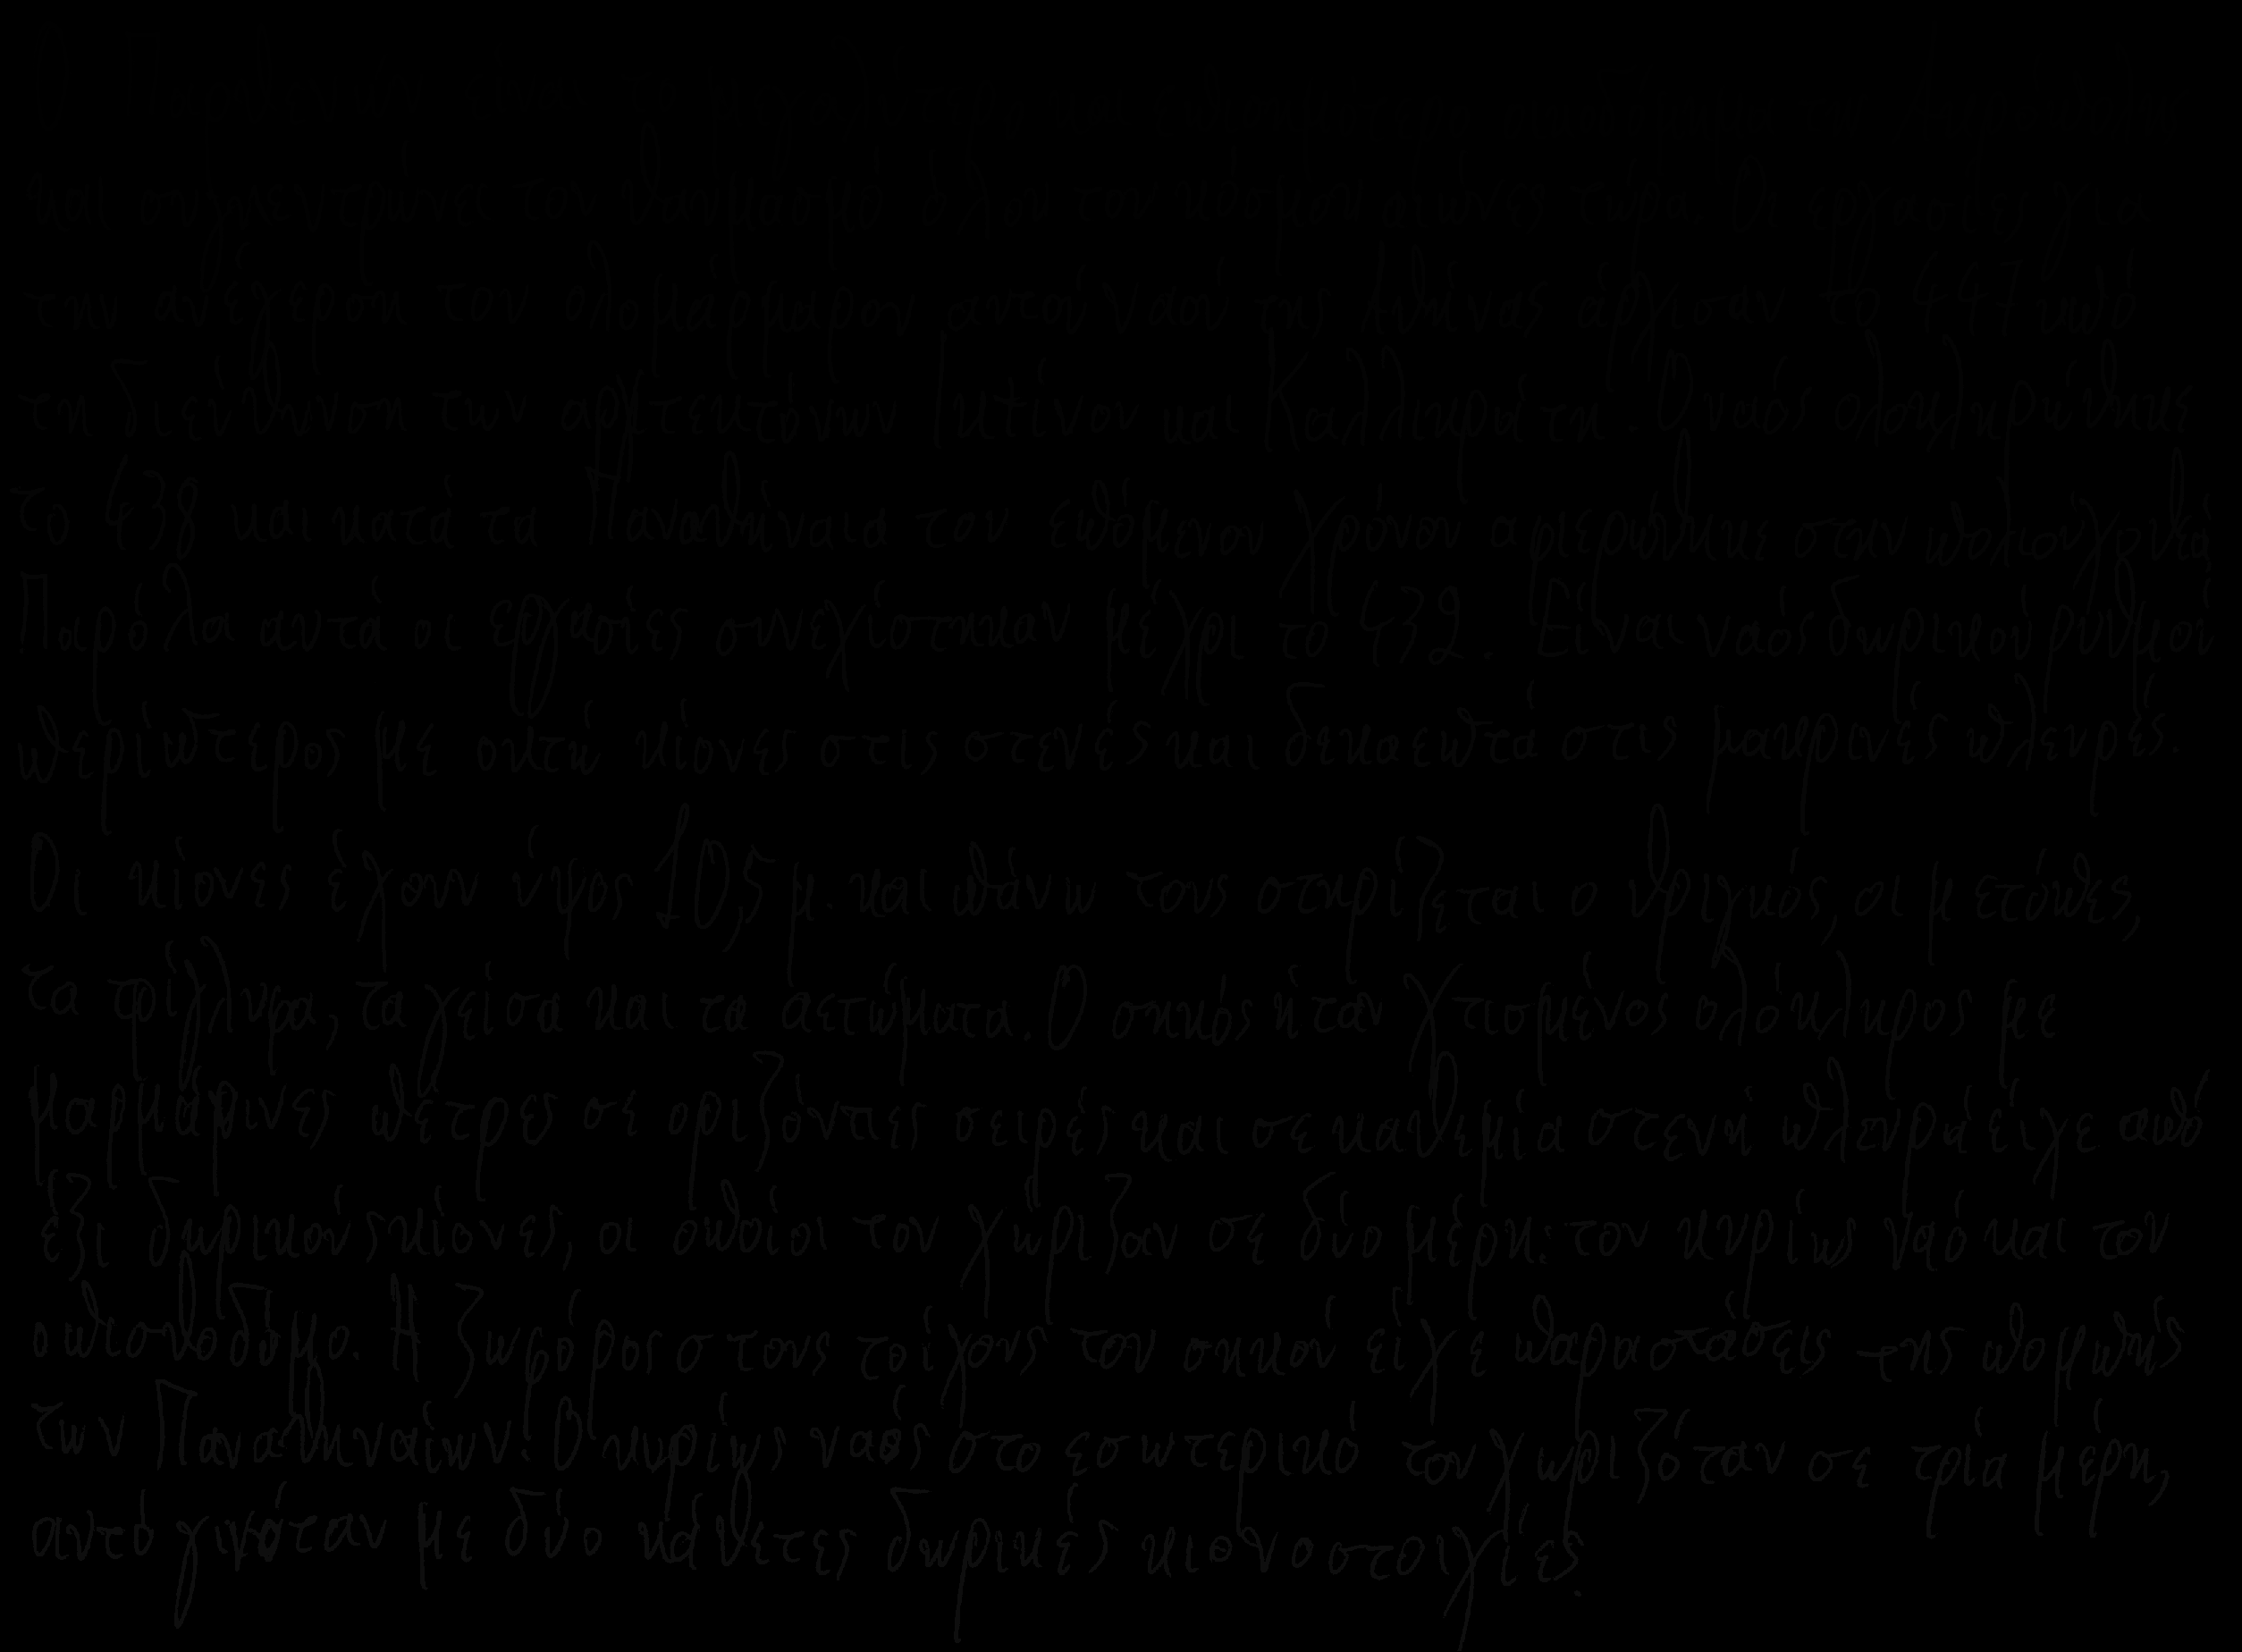 και συγκεντρώνει τον θαυμασμό όλου του κόσμου αιώνες τώρα. Οι εργασίες για
την ανέγερση του ολομάρμαρου αυτού ναού της Αθηνάς άρχισαν το 447 υπό
τη διεύθυνση των αρχιτεκτόνων Ικτίνου και Καλλικράτη. Ο ναός ολοκληρώθηκε
το 438 και κατά τα Παναθήναια του επόμενου χρόνου αφιερώθηκε στην πολιούχο θεά
Παρόλα αυτά οι εργασίες συνεχίστηκαν μέχρι το 432. Είναι ναός δωρικού ρυθμού
περίπτερος με οκτώ κίονες στις στενές και δεκαεπτά στις μακρινές πλευρές.
Οι κίονες έχουν ύψος 10,5 μ. και πάνω τους στηρίζεται ο θριγκός, οι μετόπες,
τα τρίγλυφα, τα γείσα και τα αετώματα. Ο σηκός ήταν χτισμένος ολόκληρος με
μαρμάρινες πέτρες σε οριζόντιες σειρές και σε καθεμία στενή πλευρά είχε από
έξι δωρικούς κίονες, οι οποίοι τον χώριζαν σε δύο μέρη: τον κυρίως ναό και τον
οπισθοδόμο. Η ζωφόρος στους τοίχους του σηκού είχε παραστάσεις της πομπής
των Παναθηναίων. Ο κυρίως ναός στο εσωτερικό του χωριζόταν σε τρία μέρη,
αυτό γινόταν με δύο κάθετες δωρικές κιονοστοιχίες.